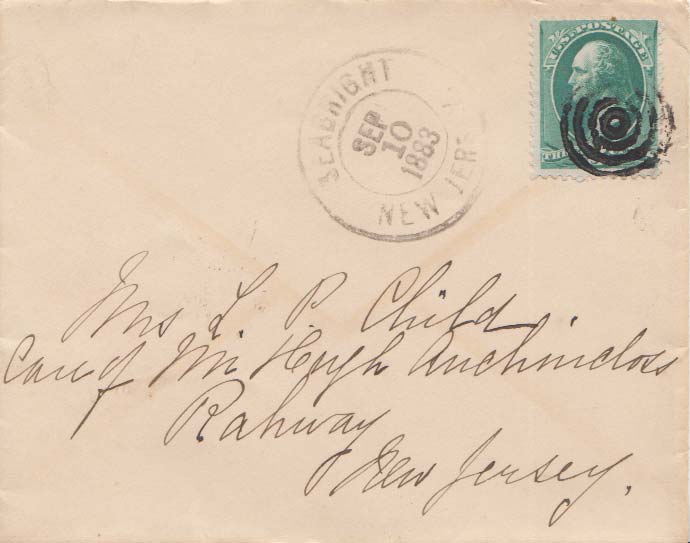 SEABRIGHT
SEP
10
1883
NEW JERSEY
U.S. POSTAGE
Mrs L. P. Child.
Care of Mr Hugh Auchincloss
Rahway
New Jersey.